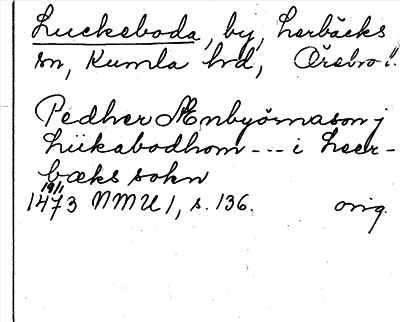 Luckeboda, by, Lerbäcks
sn, Kumla hd, Örebro l.
Pedher Ænbyörnason j
Lükabodhom --- i Leer-
bæks sokn
19/11
1473 NMU 1, s. 136. orig.